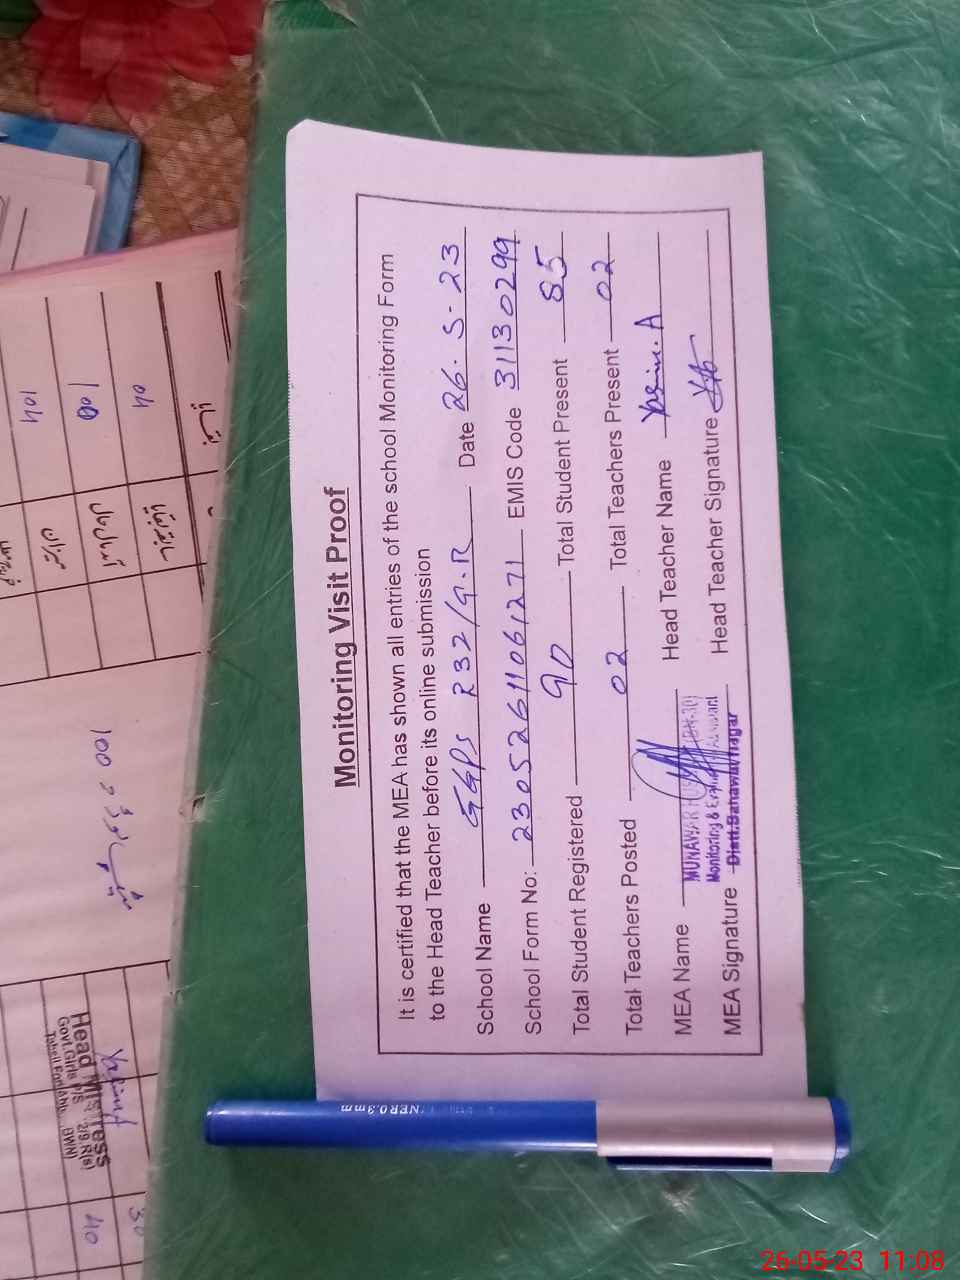 Monitoring Visit Proof
It is certified that the MEA has shown all entries of the school Monitoring Form
to the Head Teacher before its online submission
School Name GGPS 232/9.R Date 26.5.23
School Form No: 23052611061271 EMIS Code 31130299
Total Student Registered 90 Total Student Present 85
Total Teachers Posted 02 Total Teachers Present 02
MEA Name MUNAWAR Head Teacher Name Yasim.A
Monitoring &
MEA Signature Distt.Bahawalnagar Head Teacher Signature
NER 0.3mm
بقایا
سابقہ بقایا 04
آمدن حال 100
میزان 104
100
Head Mistress
Govt.Girls P/S
BWN
40
26-05-23 11:08